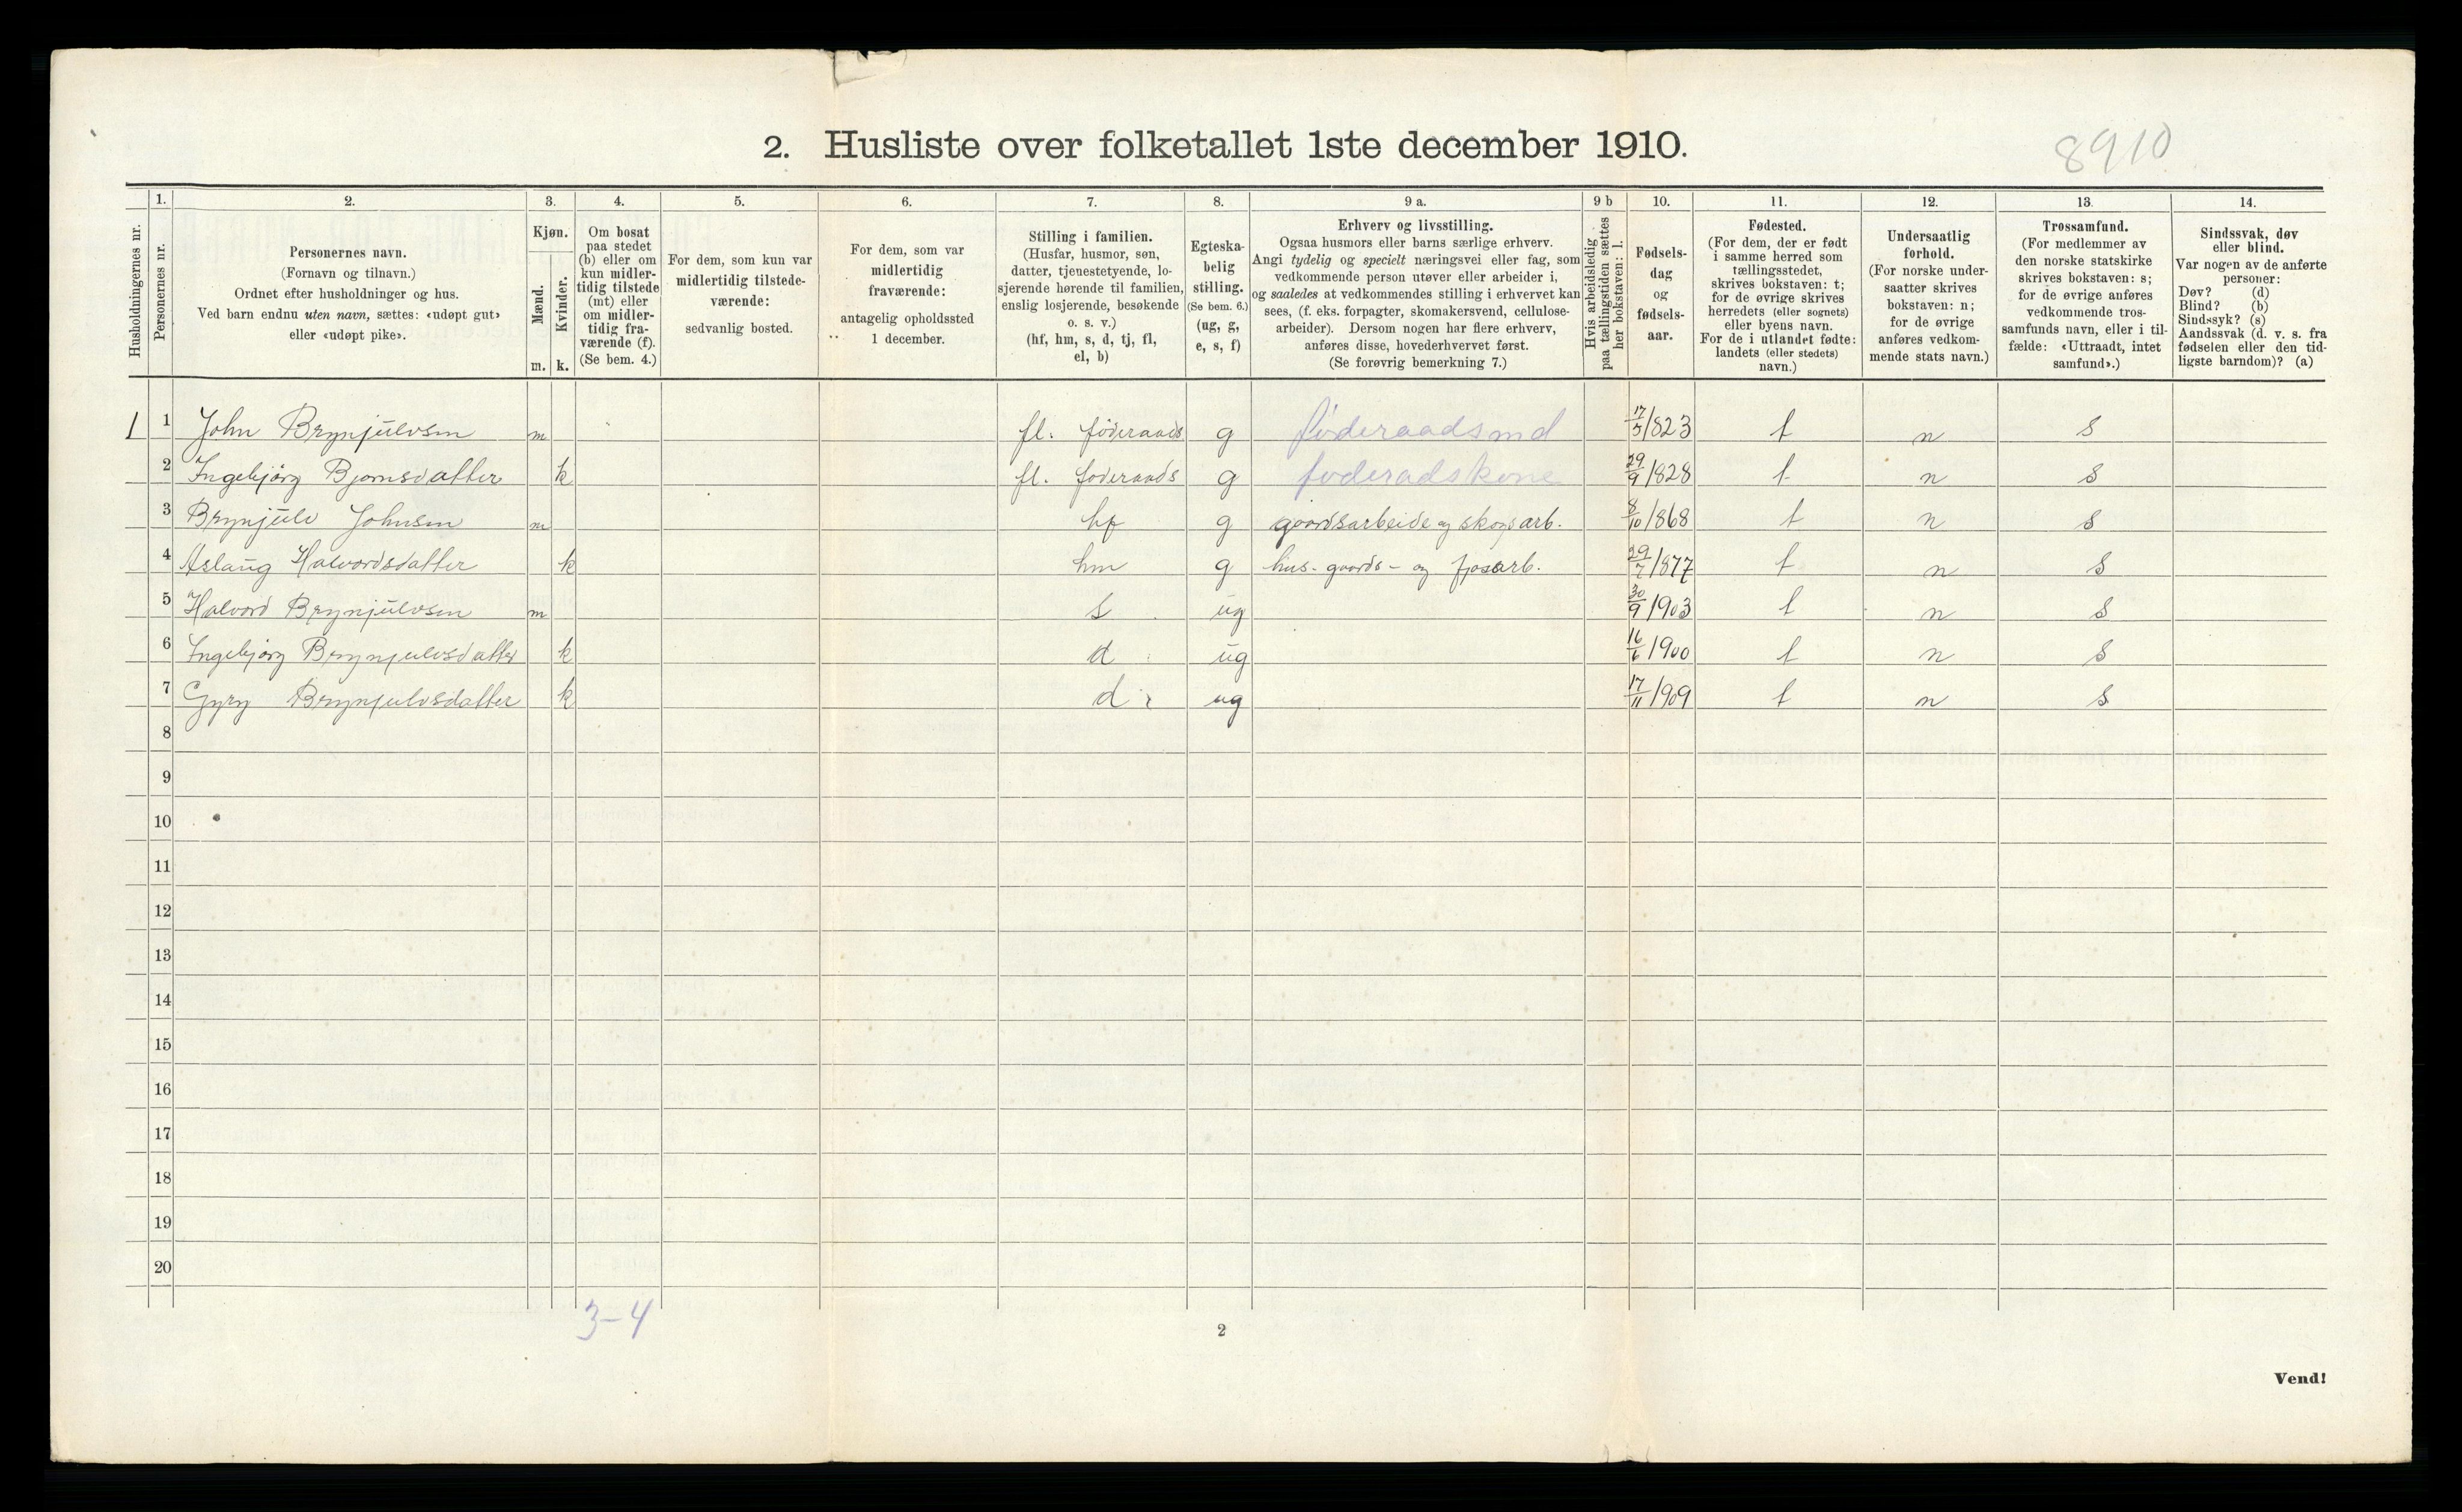 2. Husliste over folketallet 1ste december 1910.
8910
Husholdningernes nr.
1.
Personernes nr.
2.
Personernes navn.
(Fornavn og tilnavn.)
Ordnet efter husholdninger og hus.
Ved barn endnu uten navn, sættes: «udøpt gut»
eller «udøpt pike».
3.
Kjøn.
Mænd.
Kvinder.
m. k.
4.
Om bosat
paa stedet
(b) eller om
kun midler-
tidig tilstede
(mt) eller
om midler-
tidig fra-
værende (f).
(Se bem. 4.)
5.
For dem, som kun var
midlertidig tilstede-
værende:
sedvanlig bosted.
6.
For dem, som var
midlertidig
fraværende:
antagelig opholdssted
1 december.
7.
Stilling i familien.
(Husfar, husmor, søn,
datter, tjenestetyende, lo-
sjerende hørende til familien,
enslig losjerende, besøkende
o. s. v.)
(hf, hm, s, d, tj, fl,
el, b)
8.
Egteska-
belig
stilling.
(Se bem. 6.)
(ug, g,
e, s, f)
9 a.
Erhverv og livsstilling.
Ogsaa husmors eller barns særlige erhverv.
Angi tydelig og specielt næringsvei eller fag, som
vedkommende person utøver eller arbeider i,
og saaledes at vedkommendes stilling i erhvervet kan
sees, (f. eks. forpagter, skomakersvend, cellulose-
arbeider). Dersom nogen har flere erhverv,
anføres disse, hovederhvervet først.
(Se forøvrig bemerkning 7.)
9 b
Hvis arbeidsledig
paa tællingstiden sættes
her bokstaven: l.
10.
Fødsels-
dag
og
fødsels-
aar.
11.
Fødested.
(For dem, der er født
i samme herred som
tællingsstedet,
skrives bokstaven: t;
for de øvrige skrives
herredets (eller sognets)
eller byens navn.
For de i utlandet fødte:
landets (eller stedets)
navn.)
12.
Undersaatlig
forhold.
(For norske under-
saatter skrives
bokstaven: n;
for de øvrige
anføres vedkom-
mende stats navn.)
13.
Trossamfund.
(For medlemmer av
den norske statskirke
skrives bokstaven: s;
for de øvrige anføres
vedkommende tros-
samfunds navn, eller i til-
fælde: «Uttraadt, intet
samfund».)
14.
Sindssvak, døv
eller blind.
Var nogen av de anførte
personer:
Døv? (d)
Blind? (b)
Sindssyk? (s)
Aandssvak (d. v. s. fra
fødselen eller den tid-
ligste barndom)? (a)
1 1 John Brynjulvsen m fl. føderaads g føderaadsmd 17/5 1823 t n s
2 Ingebjørg Bjørnsdatter k fl. foderaads g foderadskone 29/9 1828 t n s
3 Brynjulv Johnsen m hf g gaardsarbeide og skogsarb. 8/10 1868 t n s
4 Aslaug Halvordsdatter k hm g hus- gaards- og fjøsarb. 29/7 1877 t n s
5 Halvord Brynjulvsen m s ug 30/9 1903 t n s
6 Ingebjørg Brynjulvsdatter k d ug 16/6 1900 t n s
7 Gyry Brynjulvsdatter k d ug 17/11 1909 t n s
8
9
10
11
12
13
14
15
16
17
18
19
20
3-4
2
Vend!